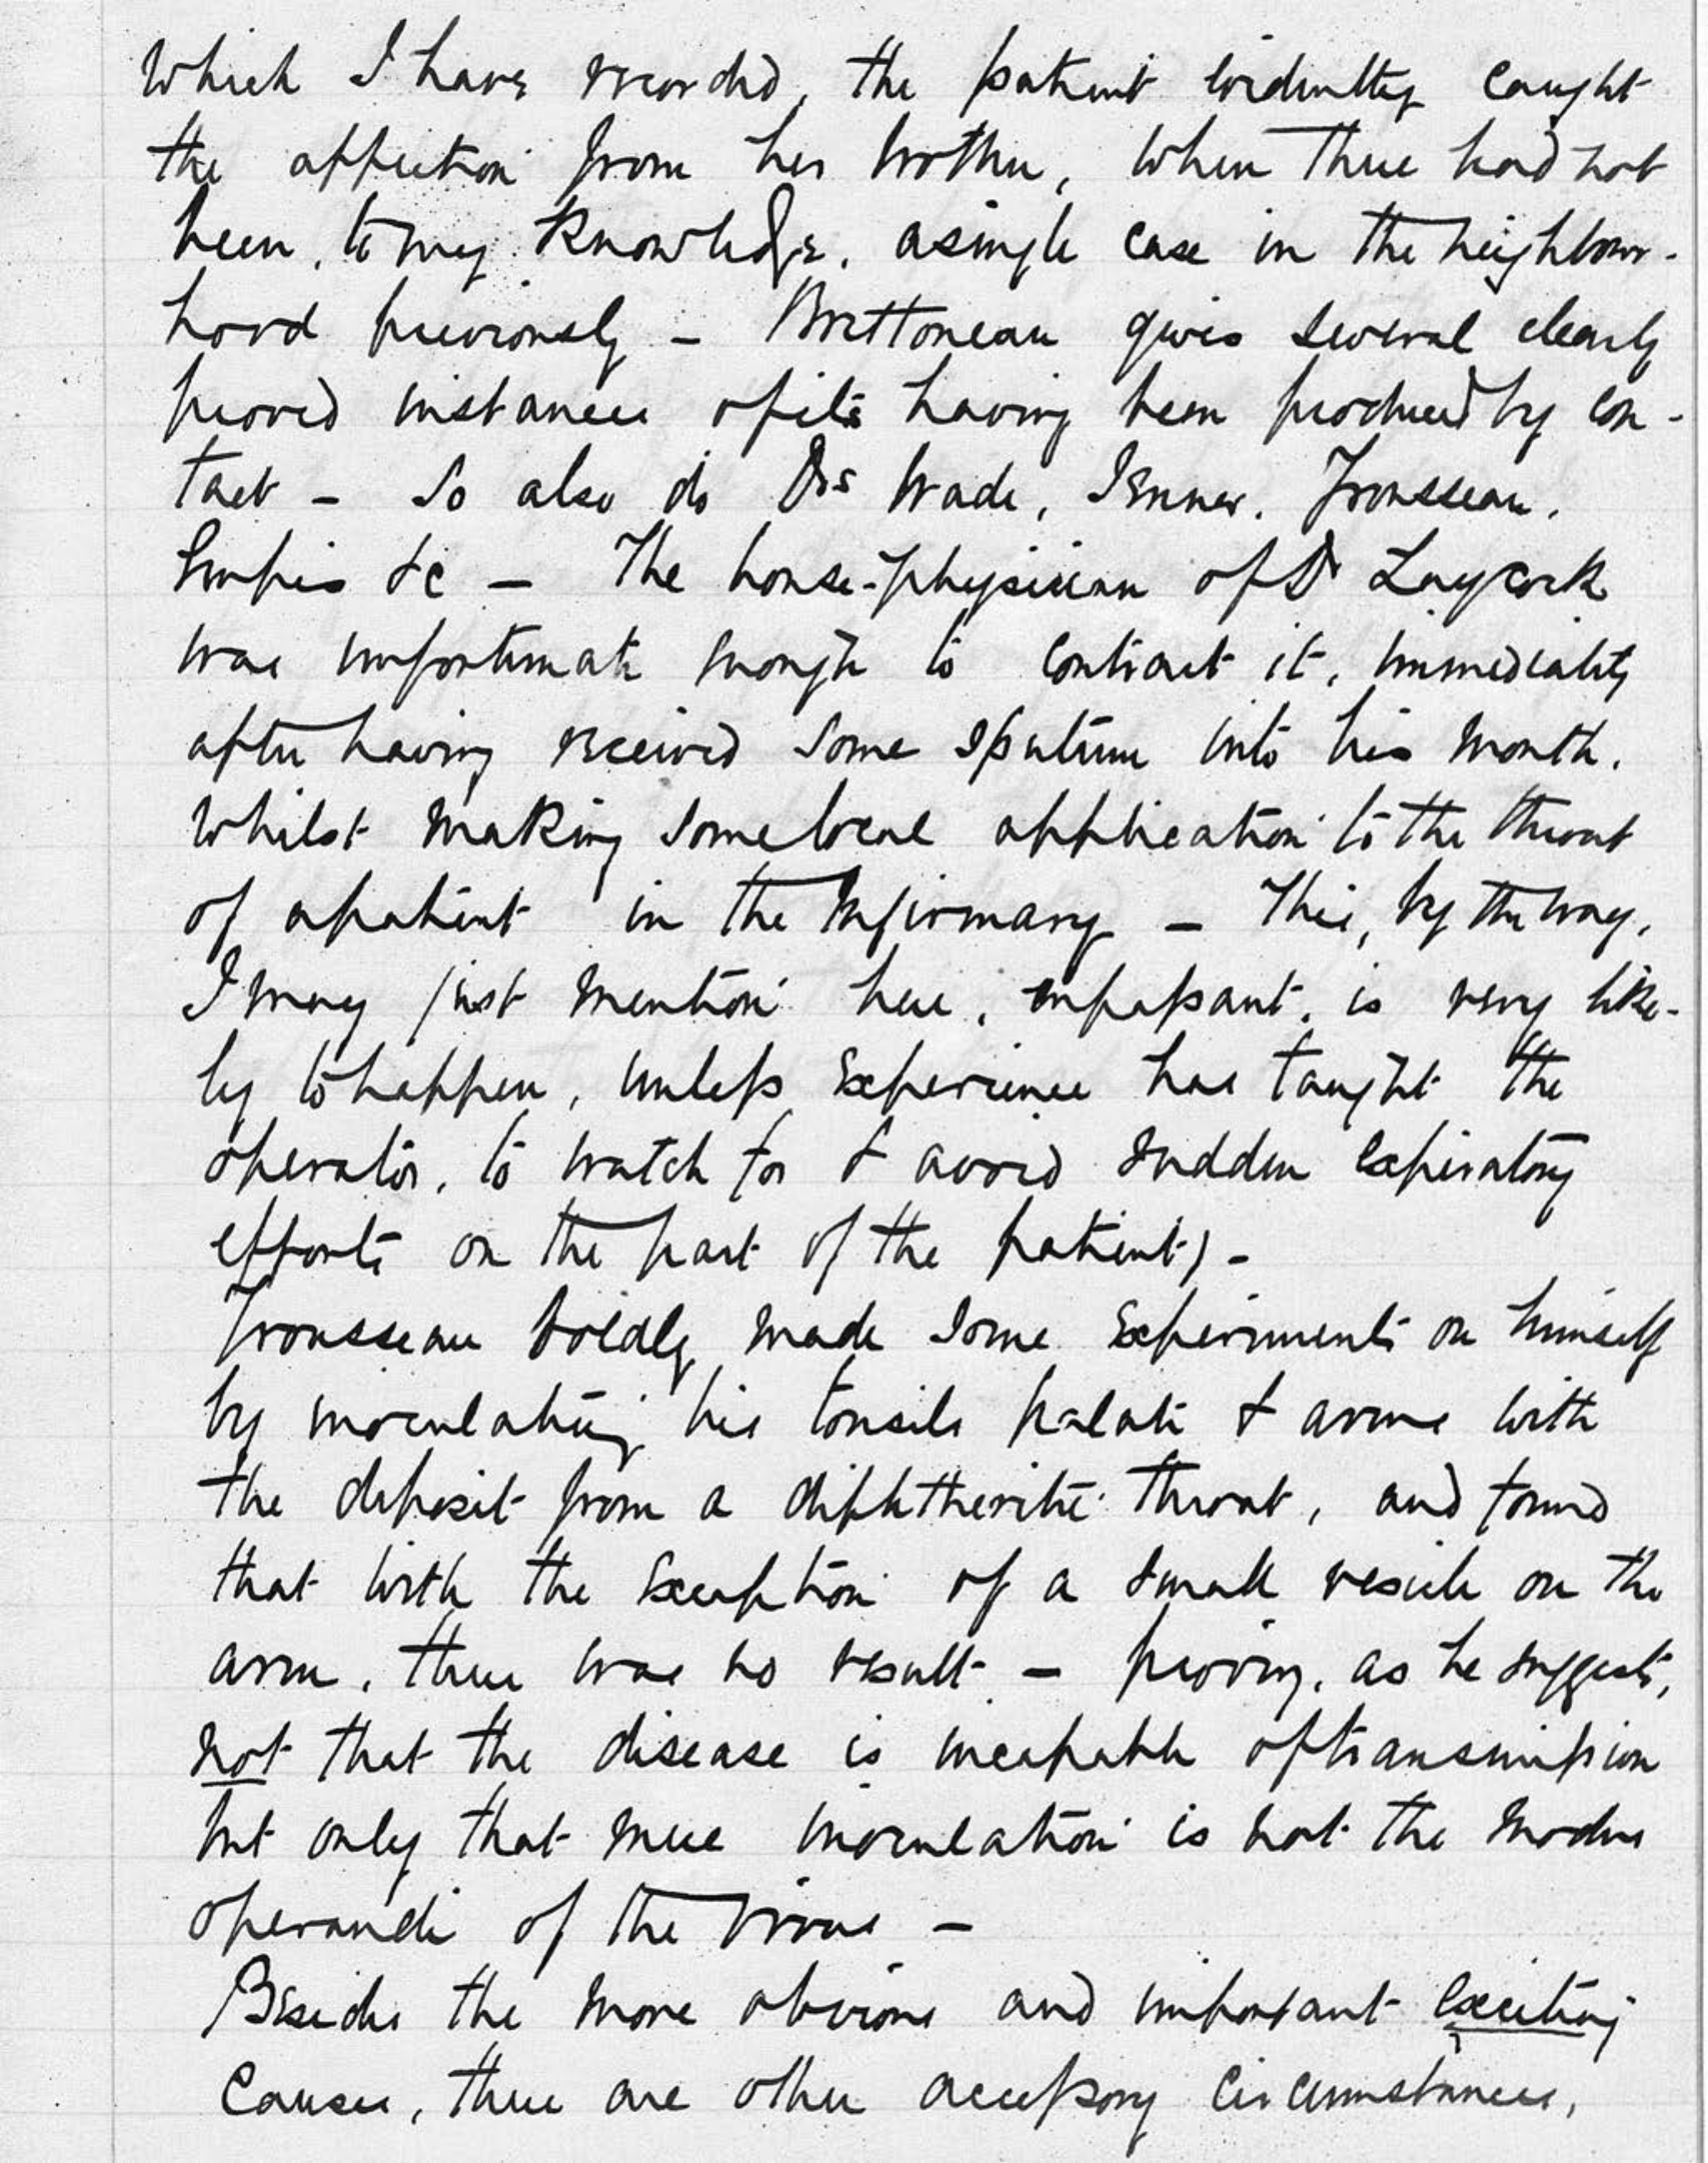 which I have recorded, the patient evidently caught
the affection from her brother, when there had not
been, to my knowledge, a single case in the neighbour-
hood previously – Brettoneau gives several clearly
proved instances of its having been produced by con-
tact – So also do Drs Wade, Jenner, Trousseau,
Empis &c – The house-physician of Dr Laycock
was unfortunate enough to contract it, immediately
after having received some sputum into his mouth,
whilst making some local application to the throat
of a patient in the Infirmary – This, by the way,
I may just mention here, en passant, is very like-
ly to happen, unless experience has taught the
operator, to watch for & avoid sudden expiratory
efforts on the part of the patient) –
Trousseau boldly made some experiments on himself
by inoculating his tonsils palate & arms with
the deposit from a diphtheritic throat, and found
that with the exception of a small vesicle on the
arm, there was no result – proving, as he suggests,
not that the disease is incapable of transmission
but only that mere inoculation is not the modus
operandi of the virus –
Besides the more obvious and important exciting
causes, there are other accessory circumstances,